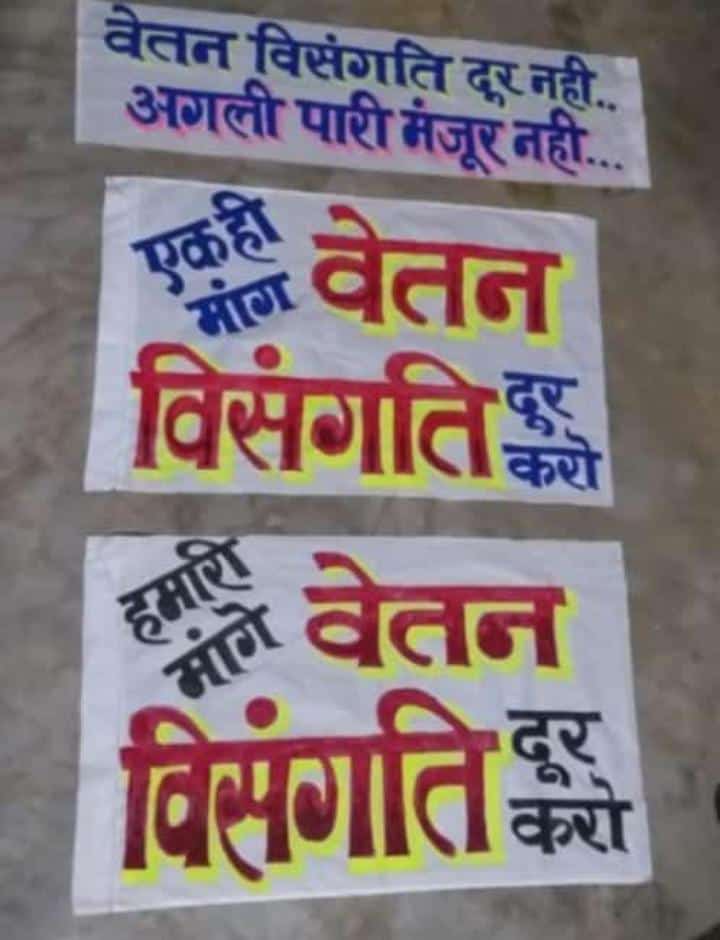 वेतन विसंगति दूर नही..
अगली पारी मंजूर नही...
एक ही
मांग
वेतन
विसंगति
दूर
करो
हमारी
मांगे
वेतन
विसंगति
दूर
करो